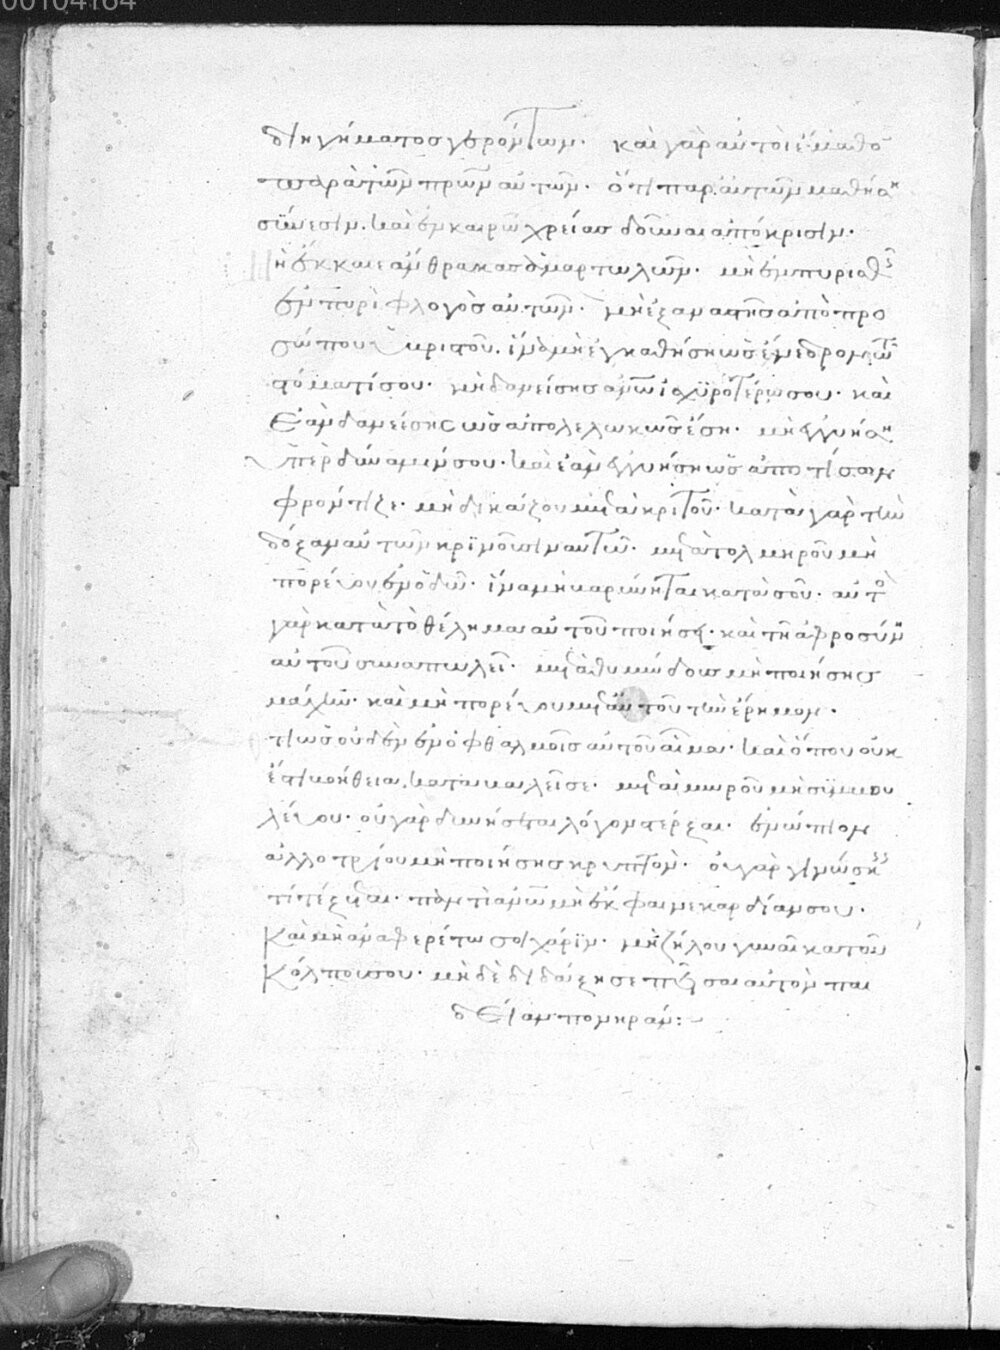 00104164
διηγήματος γερόντων. καὶ γὰρ αὐτοὶ ἔμαθο
παρὰ τῶν πρων αὐτῶν. ὅτι παρ αυτῶν μαθήση
σύνεσιν. καὶ ἐν καιρῶ χρείας δοῦναι ἀπόκρισιν.
μὴ ἔκκαιε ἄνθρακας ἁμαρτωλῶν. μὴ ἐμπυρισθῆς
ἐν πυρὶ φλογὸς αὐτῶν. μὴ ἐξαναστῆς ἀπὸ προ
σώπου ὑβριστοῦ. ἵνα μὴ ἐγκαθήση ὡς ἔνεδρον τῶ
στόματί σου. μὴ δανείσης ἀνω ἰσχυροτέρω σου. καὶ
ἐὰν δανείσης ὡς ἀπολελωκὼς ἔση. μὴ ἐγγυήση
ὑπὲρ δύναμίν σου. καὶ ἐὰν ἐγγυήση ὡς ἀποτίσων
φρόντιζε. μὴ δικάζου μετὰ κριτοῦ. κατὰ γὰρ τὴν
δόξαν αὐτοῦ κρινοῦσιν αυτῶ. μετὰ τολμηροῦ μὴ
πορεύου ἐν ὁδῶ. ἵνα μὴ βαρύνηται κατὰ σοῦ. αὐτὸς
γὰρ κατὰ τὸ θέλημα αὐτοῦ ποιήσει. καὶ τῆ ἀφροσύνη
αὐτοῦ συναπολεῖ. μετὰ θυμώδους μὴ ποιήσης
μάχην. καὶ μὴ πορεύου μετ αὐτοῦ τὴν ἔρημον.
ὡς οὐδὲν ἐν ὀφθαλμοῖς αὐτοῦ αἷμα. καὶ ὅπου οὐκ
ἔστι βοήθεια καταβαλεῖ σε. μετὰ μωροῦ μὴ συμβου
λεύου. οὐ γὰρ δυνήσεται λόγον στέρξαι. ἐνώπιον
ἀλλοτρίου μὴ ποιήσης κρυπτόν. οὐ γὰρ γινώσκεις
τί τέξεται. παντὶ ἀνω μὴ ἔκφαινε καρδίαν σου.
καὶ μὴ ἀναφερέτω σοι χάριν. μὴ ζήλου γυναῖκα τοῦ
κόλπου σου. μηδὲ διδάξης ἐπὶ σεαυτὸν παι
δείαν πονηράν: